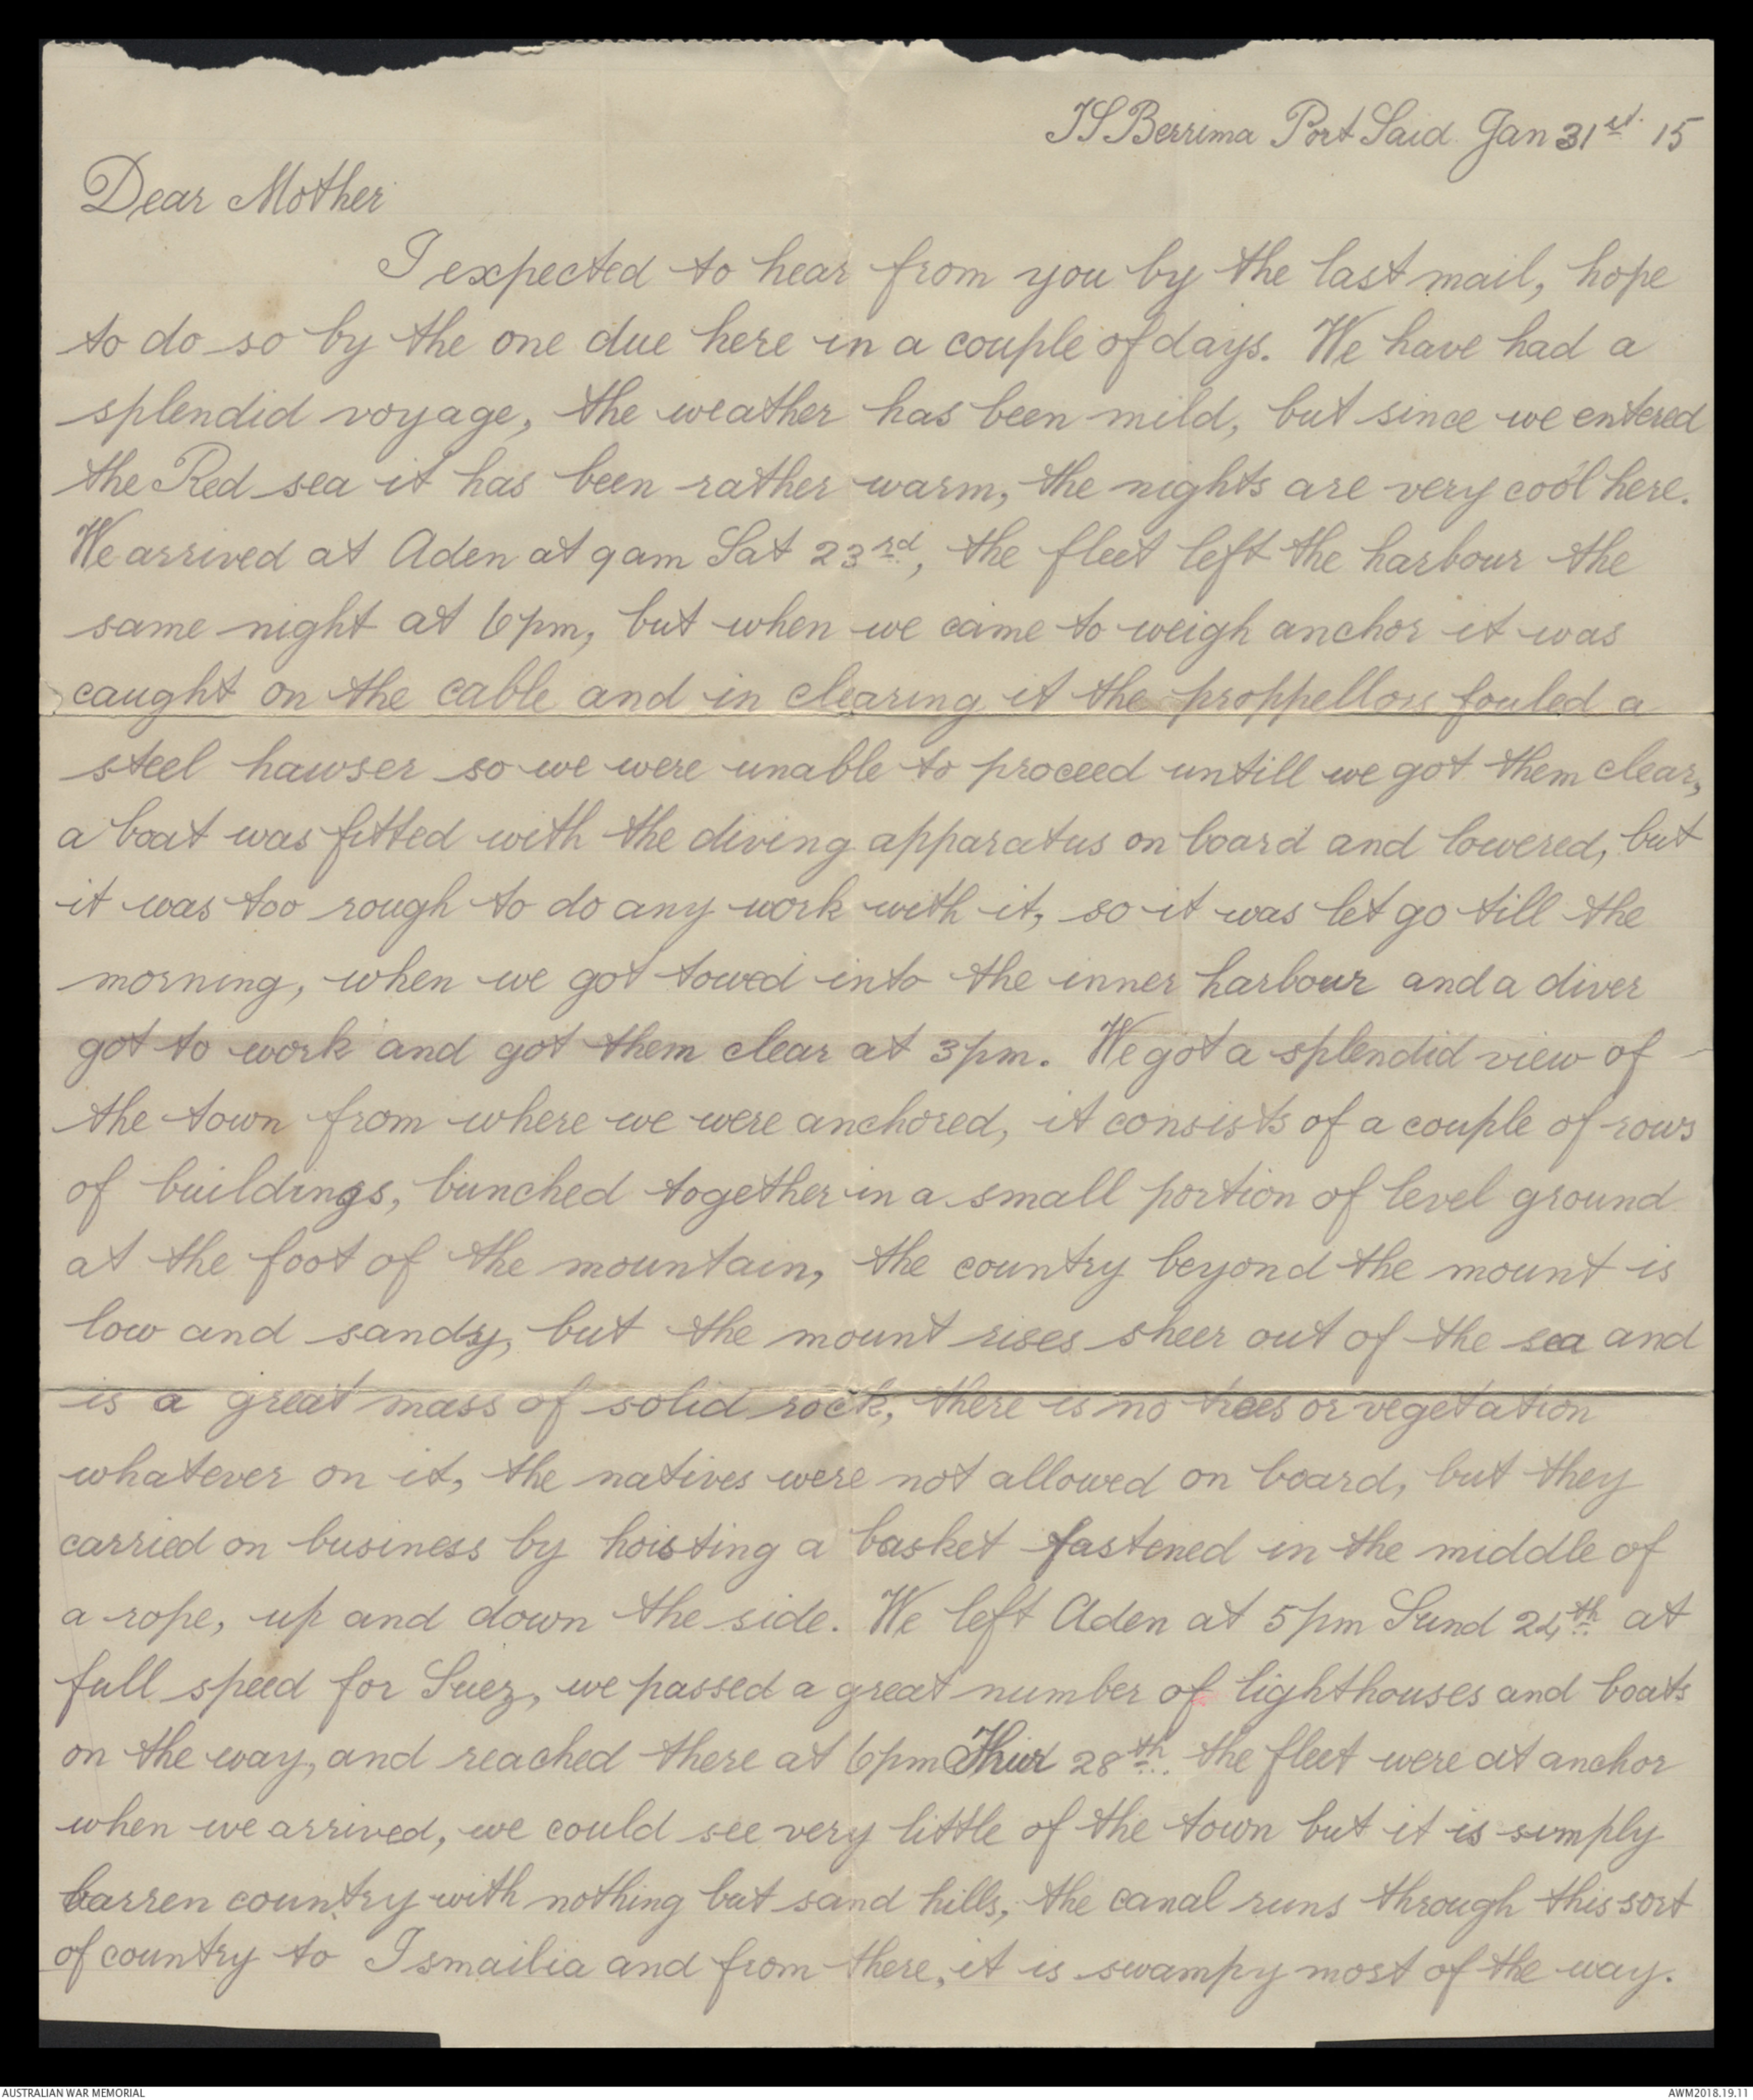 TS Berrima Port Said Jan 31st. 15
Dear Mother
I expected to hear from you by the last mail, hope
to do so by the one due here in a couple of days. We have had a
splendid voyage, the weather has been mild, but since we entered
the Red sea it has been rather warm, the nights are very cool here.
We arrived at Aden at 9am Sat 23rd, the fleet left the harbour the
same night at 6pm, but when we came to weigh anchor it was
caught on the cable and in clearing it the proppellors fouled a
steel hawser so we were unable to proceed untill we got them clear,
a boat was fitted with the diving apparatus on board and lowered, but
it was too rough to do any work with it, so it was let go till the
morning, when we got towed into the inner harbour and a diver
got to work and got them clear at 3pm. We got a splendid view of
the town from where we were anchored, it consists of a couple of rows
of buildings, bunched together in a small portion of level ground
at the foot of the mountain, the country beyond the mount is
low and sandy, but the mount rises sheer out of the sea and
is a great mass of solid rock, there is no trees or vegetation
whatever on it, the natives were not allowed on board, but they
carried on business by hoisting a basket fastened in the middle of
a rope, up and down the side. We left Aden at 5pm Sund 24th at
full speed for Suez, we passed a great number of lighthouses and boats
on the way, and reached there at 6pm Thur 28th. the fleet were at anchor
when we arrived, we could see very little of the town but it is simply
barren country with nothing but sand hills, the canal runs through this sort
of country to Ismailia and from there, it is swampy most of the way.
AUSTRALIAN WAR MEMORIAL
AWM2018.19.11